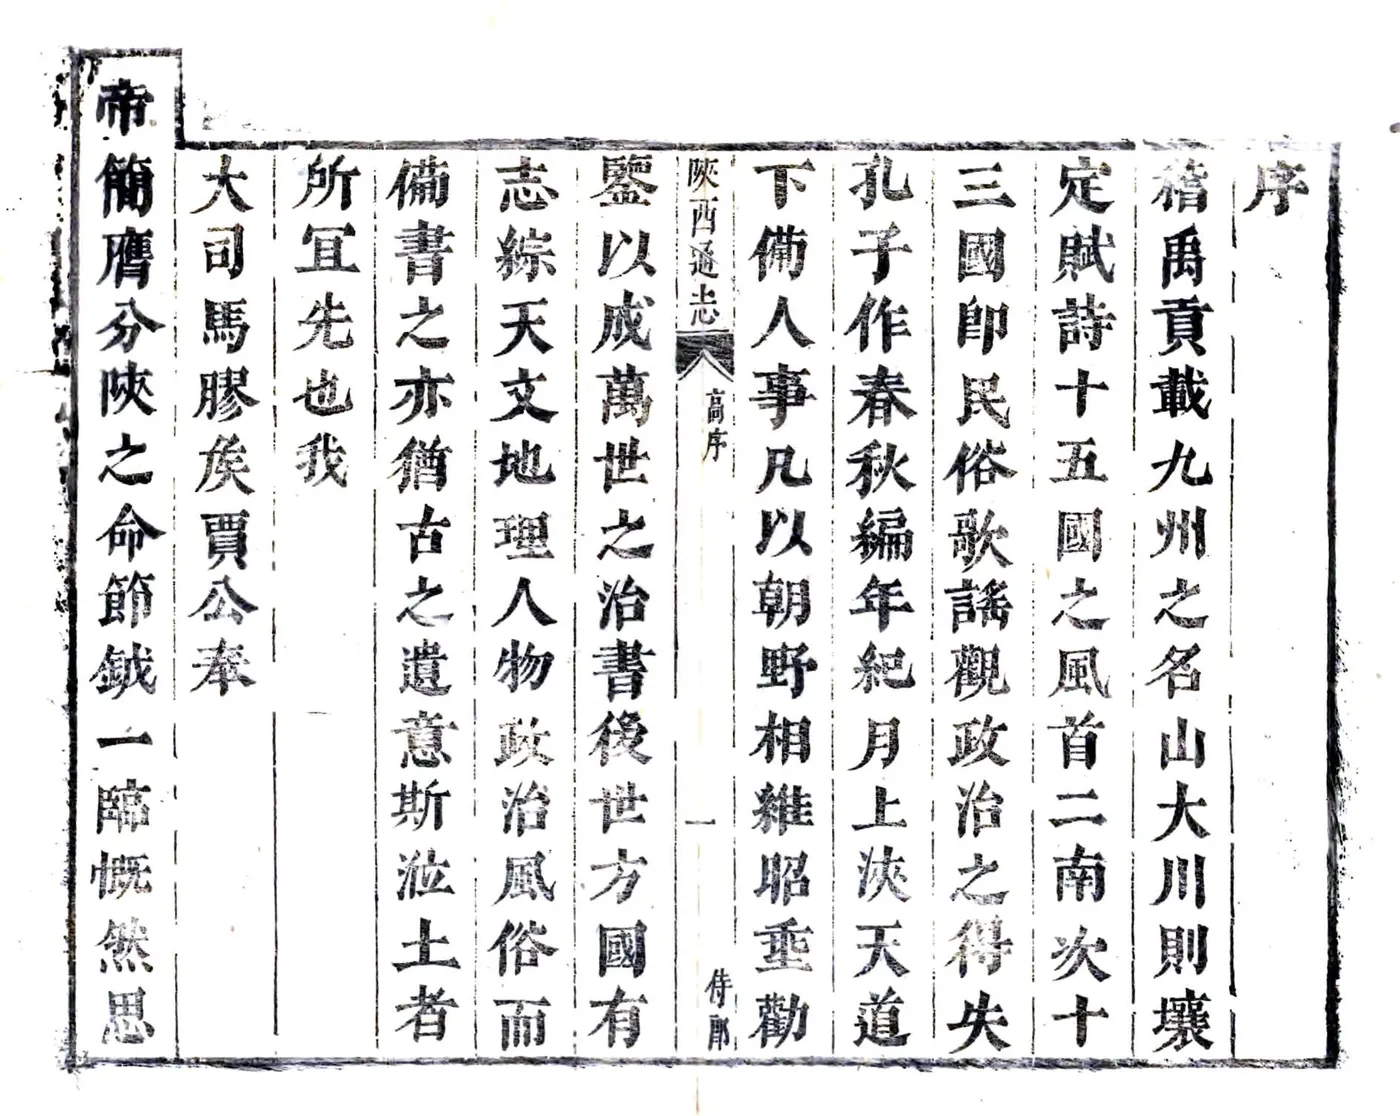 序
稽禹貢載九州之名山大川則壤
定賦詩十五國之風首二南次十
三國即民俗歌謠觀政治之得失
孔子作春秋編年紀月上浹天道
下備人事凡以朝野相維昭垂勸
陝西通志
高序
一
侍郎
鑒以成萬世之治書後世方國有
志綜天文地理人物政治風俗而
備書之亦猶古之遺意斯涖土者
所宜先也我
大司馬膠矦賈公奉
帝簡膺分陝之命節鉞一臨慨然思